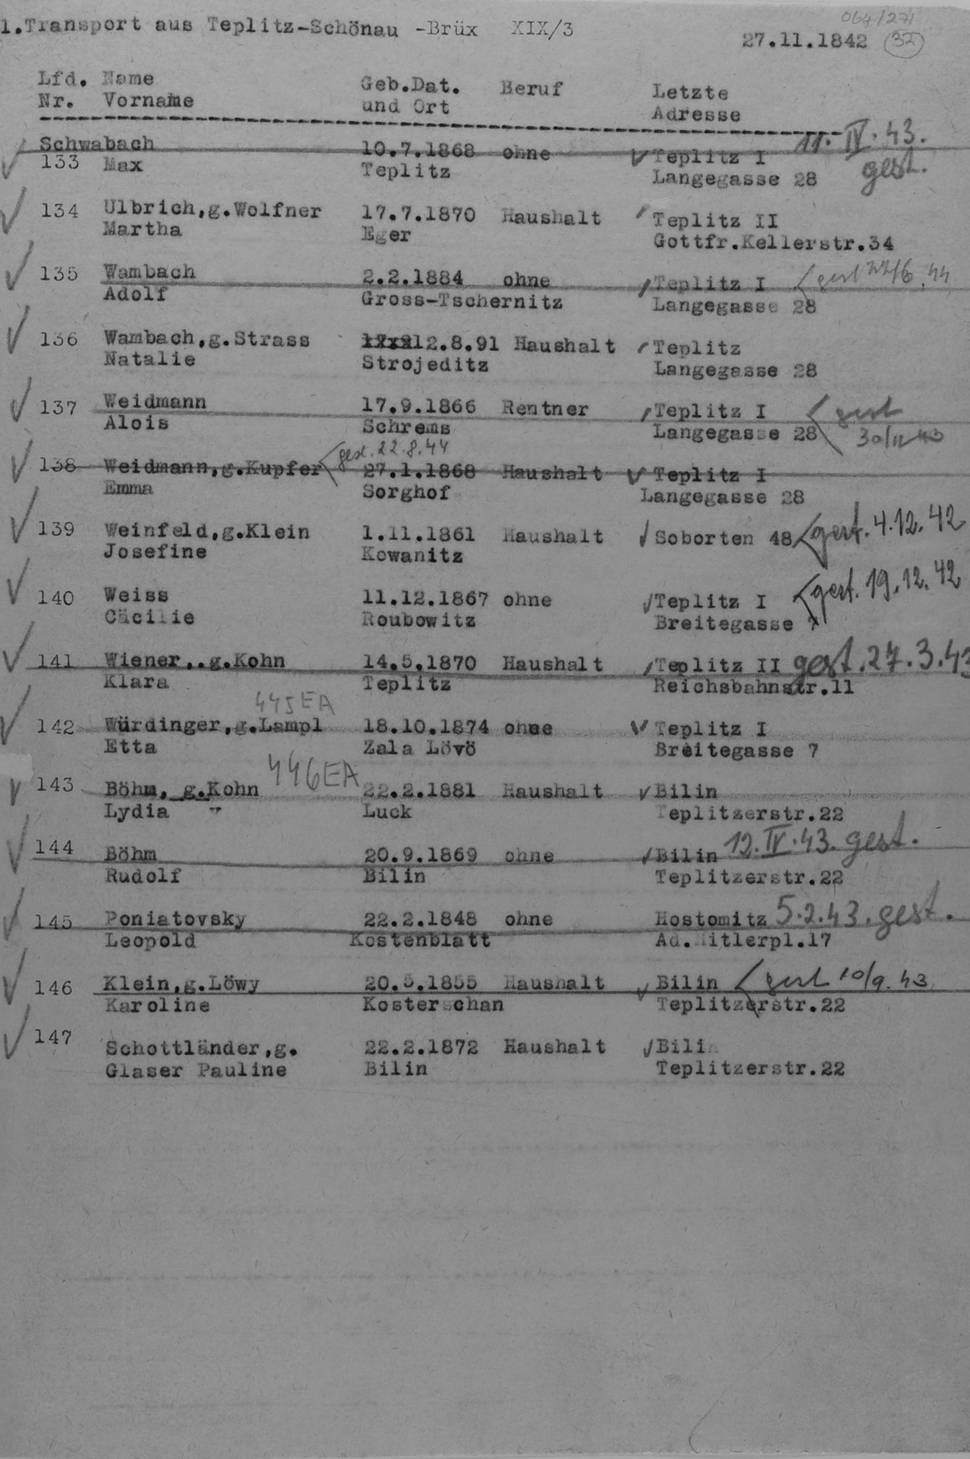 1.Transport aus Teplitz-Schönau -Brüx XIX/3
064/271
27.11.1842 32
Lfd. Name Geb.Dat. Beruf Letzte
Nr. Vorname und Ort Adresse
Schwabach 10.7.1868 ohne Teplitz I 11. IV. 43.
133 Max Teplitz Langegasse 28 gest.
134 Ulbrich,g.Wolfner 17.7.1870 Haushalt Teplitz II
Martha Eger Gottfr.Kellerstr.34
135 Wambach 2.2.1884 ohne Teplitz I gest 44
Adolf Gross-Tschernitz Langegasse 28
136 Wambach,g.Strass 12.8.91 Haushalt Teplitz
Natalie Strojeditz Langegasse 28
137 Weidmann 17.9.1866 Rentner Teplitz I gest
Alois Schrems Langegasse 28 30/11 43
gest. 22.8.44
138 Weidmann,g.Kupfer 27.1.1868 Haushalt Teplitz I
Emma Sorghof Langegasse 28
139 Weinfeld,g.Klein 1.11.1861 Haushalt Soborten 48 gest. 4.12.42
Josefine Kowanitz
140 Weiss 11.12.1867 ohne Teplitz I gest. 19.12.42
Cäcilie Roubowitz Breitegasse 7
141 Wiener,.g.Kohn 14.5.1870 Haushalt Teplitz II gest.27.3.43
Klara Teplitz Reichsbahnstr.11
445EA
142 Würdinger,g.Lampl 18.10.1874 ohne Teplitz I
Etta Zala Lövö Breitegasse 7
446EA
143 Böhm, g.Kohn 22.2.1881 Haushalt Bilin
Lydia " Luck Teplitzerstr.22
144 Böhm 20.9.1869 ohne Bilin 12.IV.43. gest.
Rudolf Bilin Teplitzerstr.22
145 Poniatovsky 22.2.1848 ohne Hostomitz 5.2.43. gest.
Leopold Kostenblatt Ad.Hitlerpl.17
146 Klein,g.Löwy 20.5.1855 Haushalt Bilin gest 10/9.43
Karoline Kosterschan Teplitzerstr.22
147 Schottländer,g. 22.2.1872 Haushalt Bilin
Glaser Pauline Bilin Teplitzerstr.22